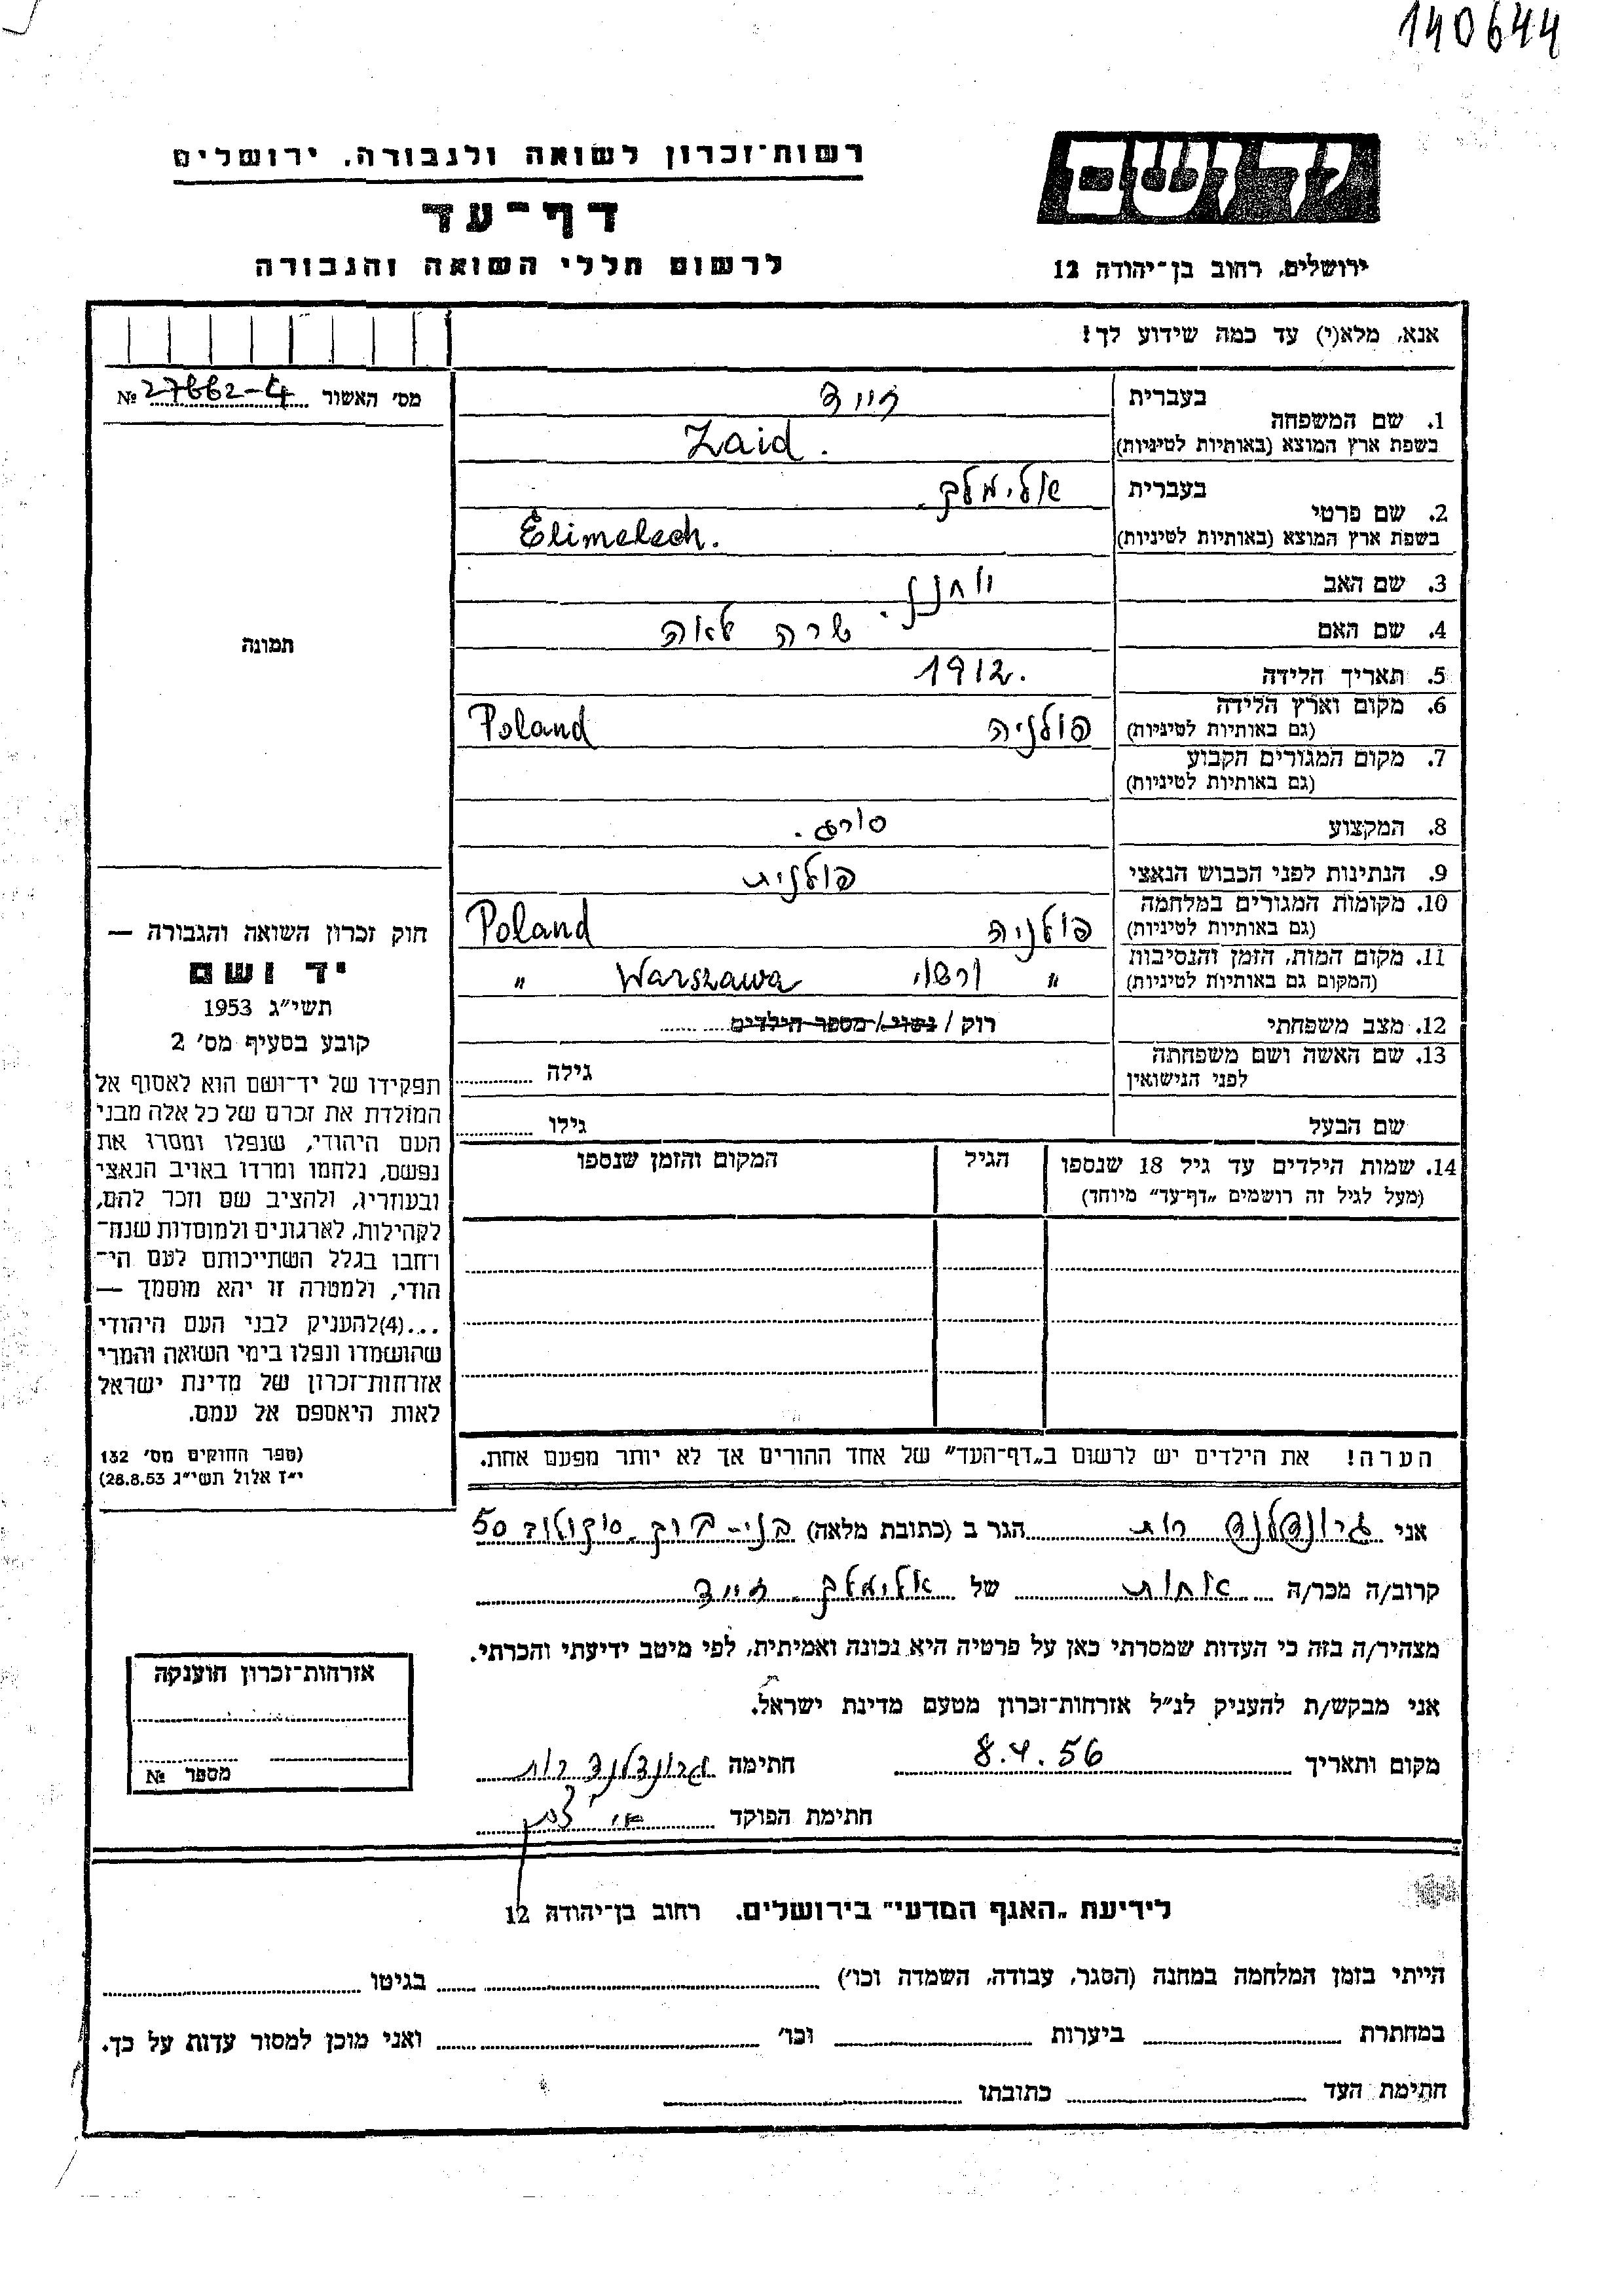 140644
יד ושם
רשות־זכרון לשואה ולגבורה, ירושלים
דף־עד
ירושלים, רחוב בן־יהודה 12
לרשום חללי השואה והגבורה
אנא, מלא(י) עד כמה שידוע לך!
מס׳ האשור № 27662-4
1. שם המשפחה בעברית
זייד
בשפת ארץ המוצא (באותיות לטיניות) Zaid.
2. שם פרטי בעברית אלימלך.
בשפת ארץ המוצא (באותיות לטיניות) Elimelech.
3. שם האב
4. שם האם שרה לאה
תמונה
5. תאריך הלידה 1912.
6. מקום וארץ הלידה
(גם באותיות לטיניות) פולניה Poland
7. מקום המגורים הקבוע
(גם באותיות לטיניות)
8. המקצוע
9. הנתינות לפני הכבוש הנאצי פולנית
10. מקומות המגורים במלחמה
(גם באותיות לטיניות) פולניה Poland
11. מקום המות, הזמן והנסיבות
(המקום גם באותיות לטיניות) " ורשה Warszawa "
12. מצב משפחתי רוק / נשוי / מספר הילדים
13. שם האשה ושם משפחתה
לפני הנישואין גילה
שם הבעל גילו
חוק זכרון השואה והגבורה —
יד ושם
תשי״ג 1953
קובע בסעיף מס׳ 2
תפקידו של יד־ושם הוא לאסוף אל
המולדת את זכרם של כל אלה מבני
העם היהודי, שנפלו ומסרו את
נפשם, נלחמו ומרדו באויב הנאצי
ובעוזריו, ולהציב שם וזכר להם,
לקהילות, לארגונים ולמוסדות שנח־
רחבו בגלל השתייכותם לעם הי־
הודי, ולמטרה זו יהא מוסמך —
...(4) להעניק לבני העם היהודי
שהושמדו ונפלו בימי השואה והמרי
אזרחות־זכרון של מדינת ישראל
לאות היאספם אל עמם.
(ספר החוקים מס׳ 132
י״ז אלול תשי״ג 28.8.53)
14. שמות הילדים עד גיל 18 שנספו הגיל המקום והזמן שנספו
(מעל לגיל זה רושמים „דף־עד” מיוחד)
הערה! את הילדים יש לרשום ב„דף־העד” של אחד ההורים אך לא יותר מפעם אחת.
אני גרונדלנד רות הגר ב (כתובת מלאה) בני-ברק סוקולוב 50
קרוב/ה מכר/ה אחות של אלימלך זייד
מצהיר/ה בזה כי העדות שמסרתי כאן על פרטיה היא נכונה ואמיתית, לפי מיטב ידיעתי והכרתי.
אני מבקש/ת להעניק לנ״ל אזרחות־זכרון מטעם מדינת ישראל.
מקום ותאריך 8.4.56 חתימה גרונדלנד רות
חתימת הפוקד
אזרחות־זכרון הוענקה
מספר №
לידיעת „האגף המדעי” בירושלים. רחוב בן־יהודה 12
הייתי בזמן המלחמה במחנה (הסגר, עבודה, השמדה וכו׳) בגיטו
במחתרת ביערות וכו׳ ואני מוכן למסור עדות על כך.
חתימת העד כתובתו